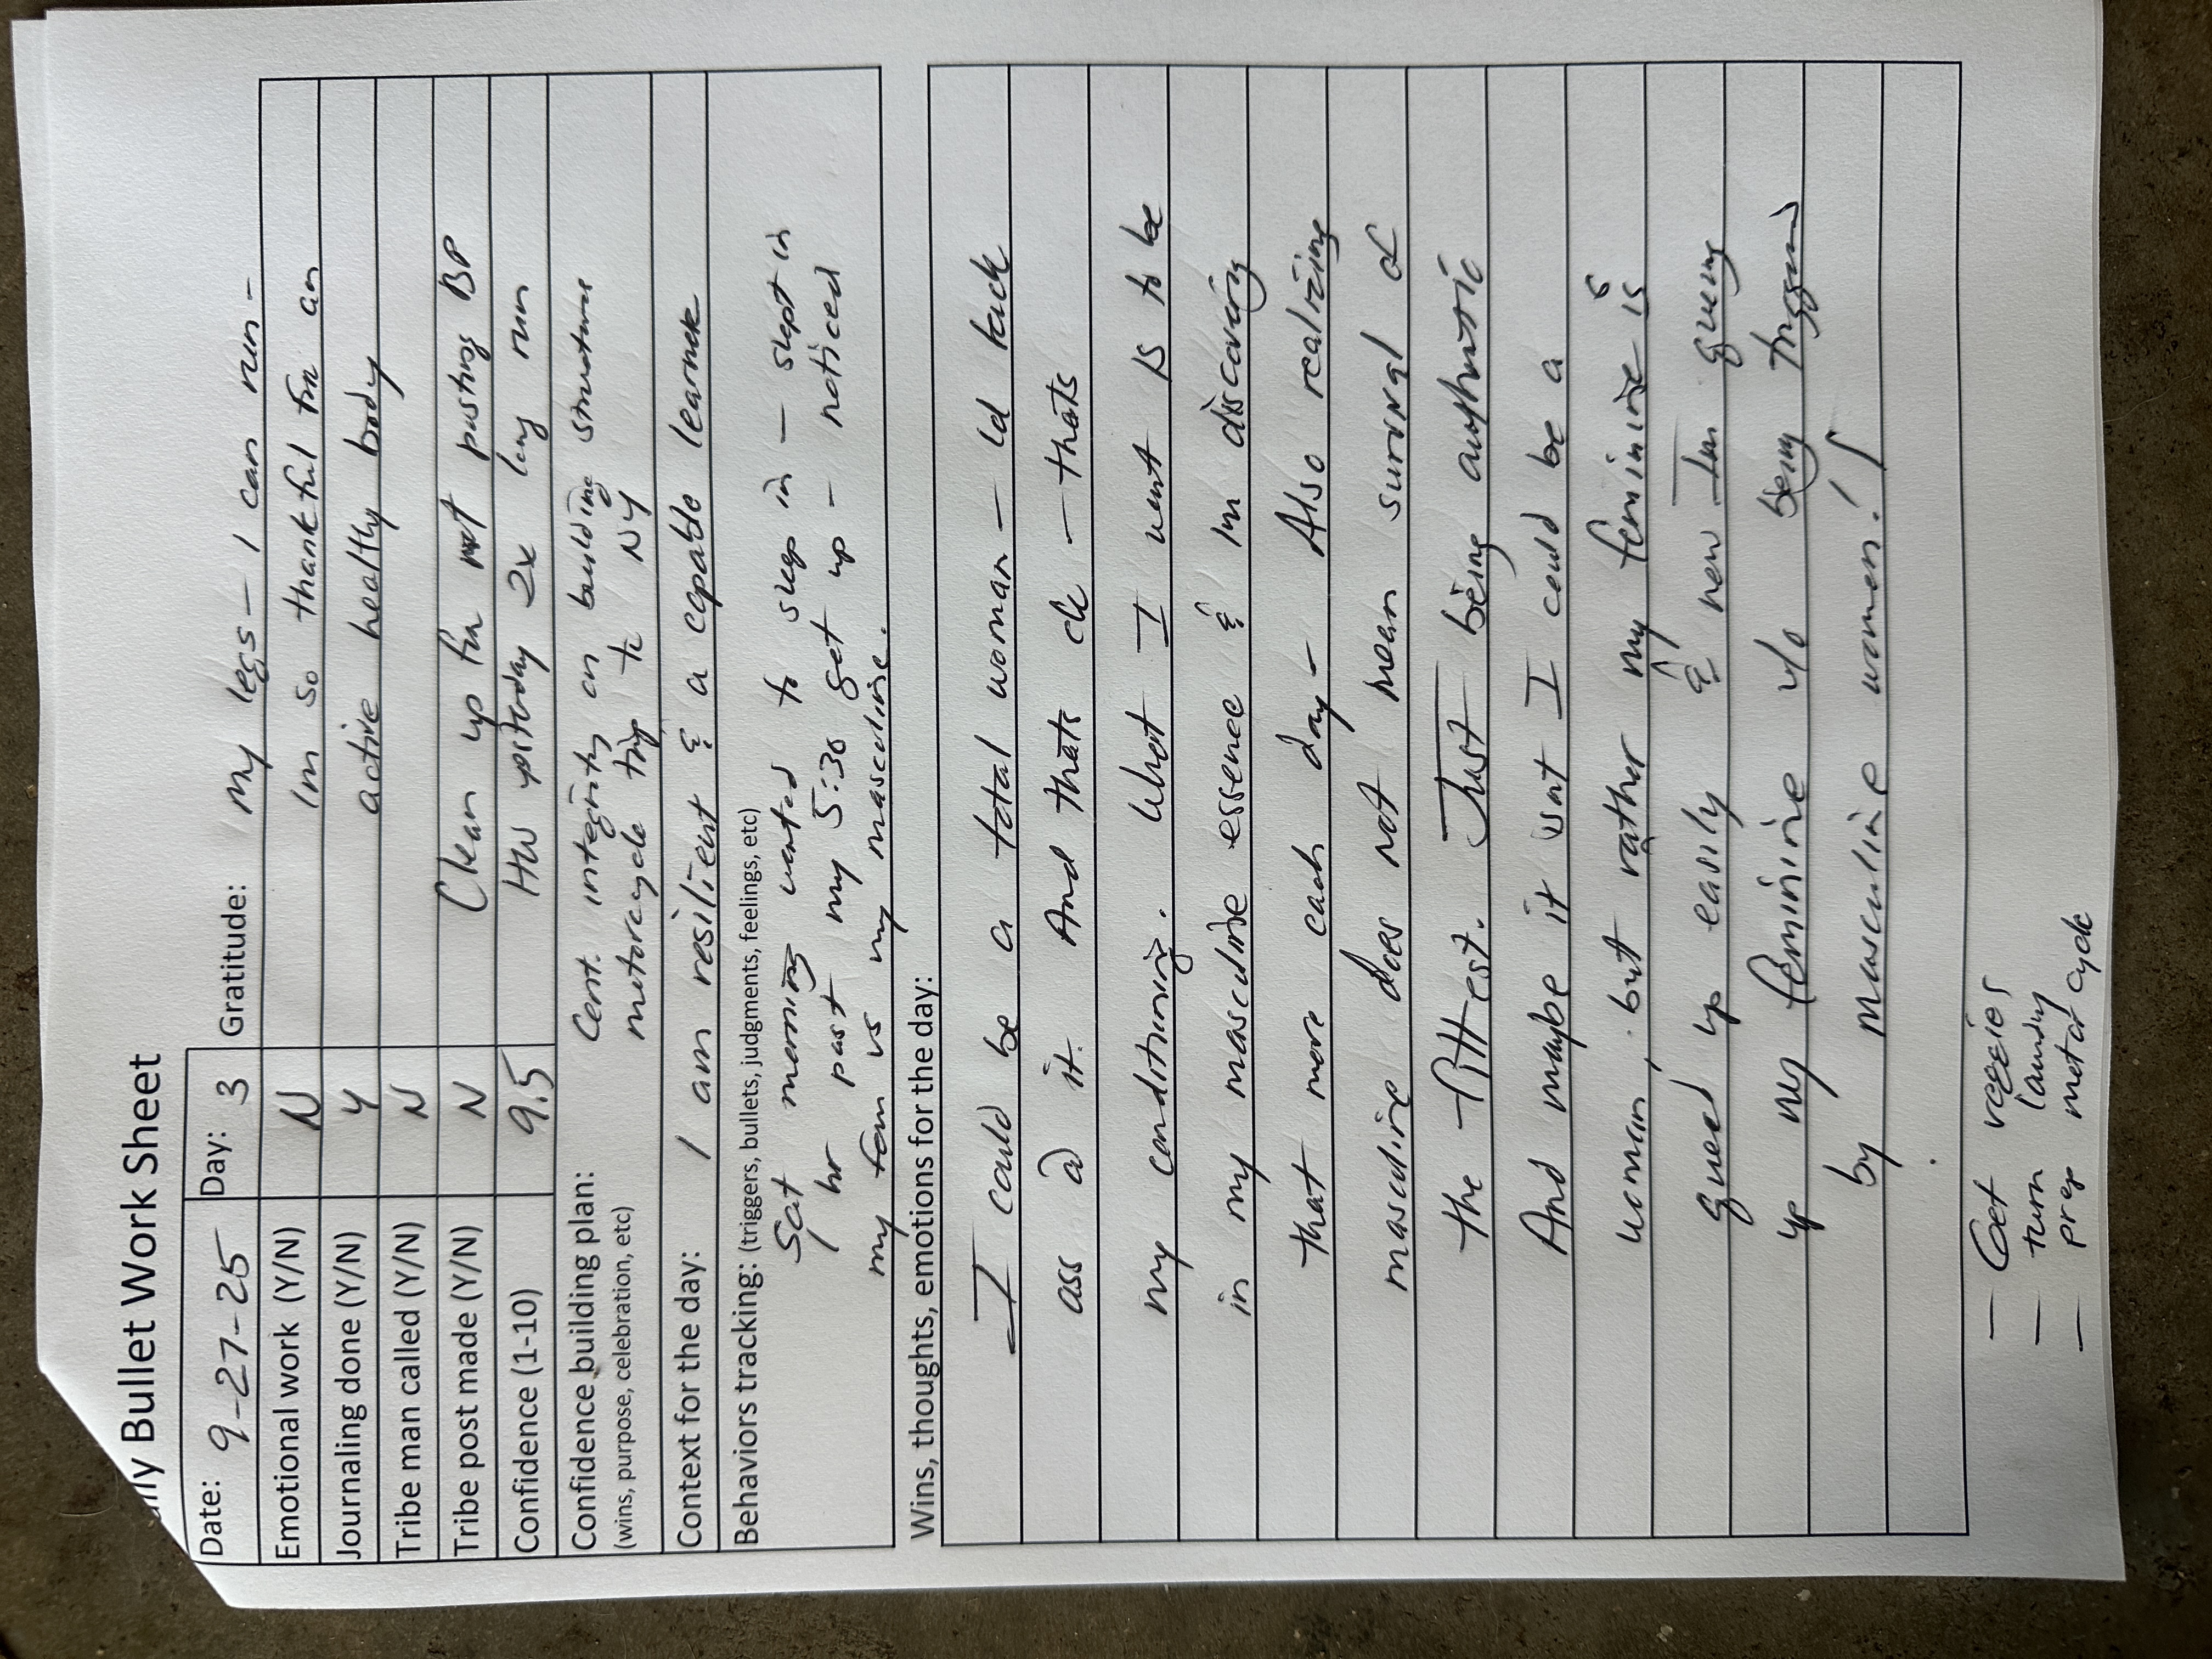 Daily Bullet Work Sheet
Date: 9-27-25 Day: 3 Gratitude: My legs - I can run -
Emotional work (Y/N) N Im so thankful for an
Journaling done (Y/N) Y active healthy body
Tribe man called (Y/N) N
Tribe post made (Y/N) N Clean up for not posting BP
Confidence (1-10) 9.5 HW yesterday 2x long run
Confidence building plan: Cont. integrity on building structure
(wins, purpose, celebration, etc) motorcycle trip to NY
Context for the day: I am resilient & a capable learner
Behaviors tracking: (triggers, bullets, judgments, feelings, etc)
Sat morning wanted to sleep in - slept in
hr past my 5:30 get up - noticed
my fem vs my masculine.
Wins, thoughts, emotions for the day:
I could be a total woman - Id kick
ass @ it. And thats ok - thats
my conditioning. What I want is to be
in my masculine essence & Im discovering
that more each day - Also realizing
masculine does not mean survival of
the fittest. Just being authentic
And maybe it isnt I could be a
woman, but rather my feminine is
queued up easily & now Im
up my feminine w/o being triggered
by masculine women!
- Get veggies
- turn laundry
- prep motorcycle